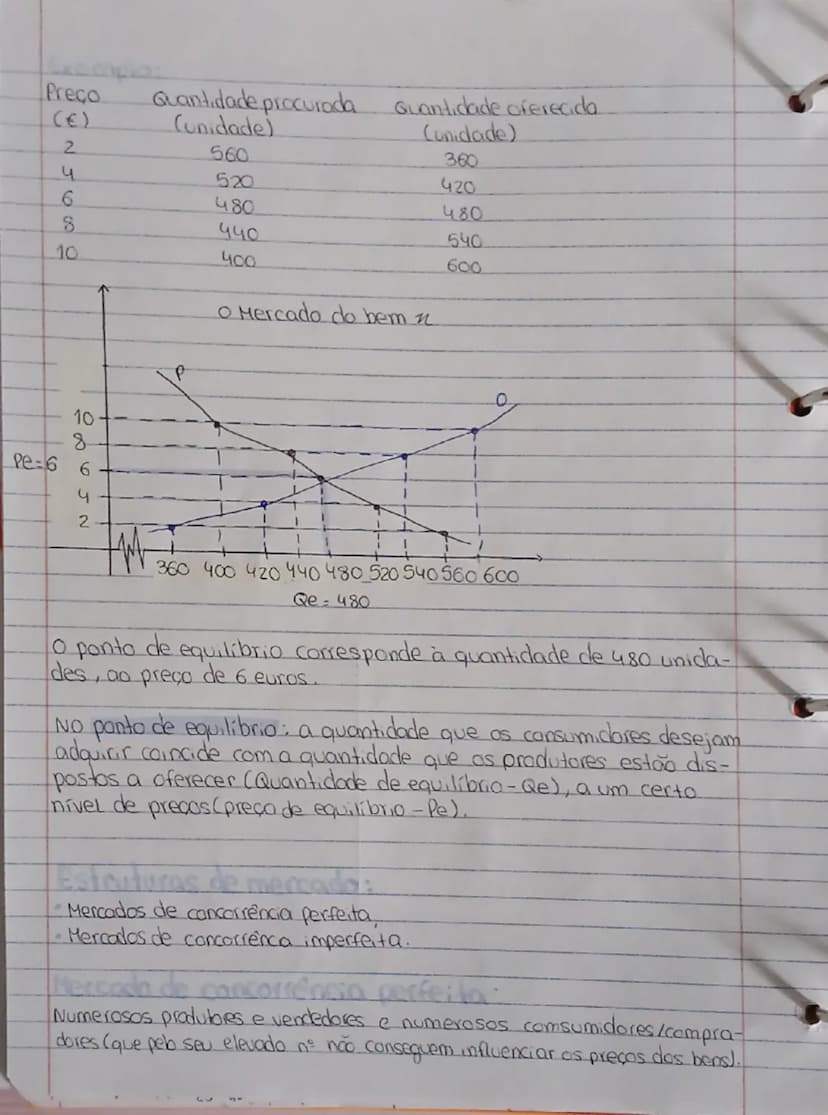 Exemplo:
Preço Quantidade procurada Quantidade oferecida
(€) (unidade) (unidade)
2 560 360
4 520 420
6 480 480
8 440 540
10 400 600
O Mercado do bem x
P
O
10
8
Pe=6 6
4
2
360 400 420 440 480 520 540 560 600
Qe = 480
O ponto de equilíbrio corresponde à quantidade de 480 unida-
des, ao preço de 6 euros.
No ponto de equilíbrio: a quantidade que os consumidores desejam
adquirir coincide com a quantidade que os produtores estão dis-
postos a oferecer (Quantidade de equilíbrio-Qe), a um certo
nível de preços (preço de equilíbrio-Pe).
Estruturas de mercado:
• Mercados de concorrência perfeita,
• Mercados de concorrênca imperfeita.
Mercado de concorrência perfeita:
Numerosos produtores e vendedores e numerosos comsumidores/compra-
dores (que pelo seu elevado nº não conseguem influenciar os preços dos bens).